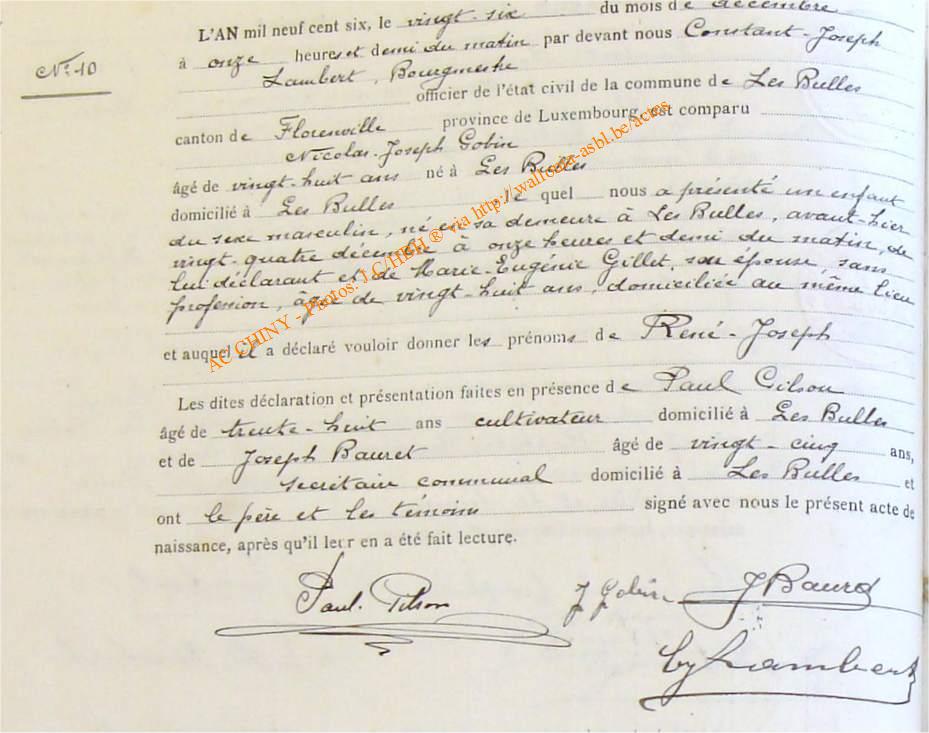 L'AN mil neuf cent six, le vingt-six du mois de décembre
N° 10
à onze heures et demi du matin par devant nous Constant-Joseph
Lambert, Bourgmestre
officier de l'état civil de la commune de Les Bulles
canton de Florenville province de Luxembourg, est comparu
Nicolas-Joseph Gobin
âgé de vingt-huit ans né à Les Bulles
domicilié à Les Bulles le quel nous a présenté un enfant
du sexe masculin, né en sa demeure à Les Bulles, avant-hier
vingt-quatre décembre à onze heures et demi du matin, de
lui déclarant et de Marie-Eugénie Gillet, son épouse, sans
profession, âgée de vingt-huit ans, domiciliée au même lieu
et auquel il a déclaré vouloir donner les prénoms de René-Joseph
Les dites déclaration et présentation faites en présence de Paul Gilson
âgé de trente-huit ans cultivateur domicilié à Les Bulles
et de Joseph Bauret âgé de vingt-cinq ans,
secrétaire communal domicilié à Les Bulles et
ont le père et les témoins signé avec nous le présent acte de
naissance, après qu'il leur en a été fait lecture.
Paul Gilson J Gobin J Bauret
Lambert
AC CHINY - Photos: J.C/HBH ® via http://wallonie-asbl.be/actes